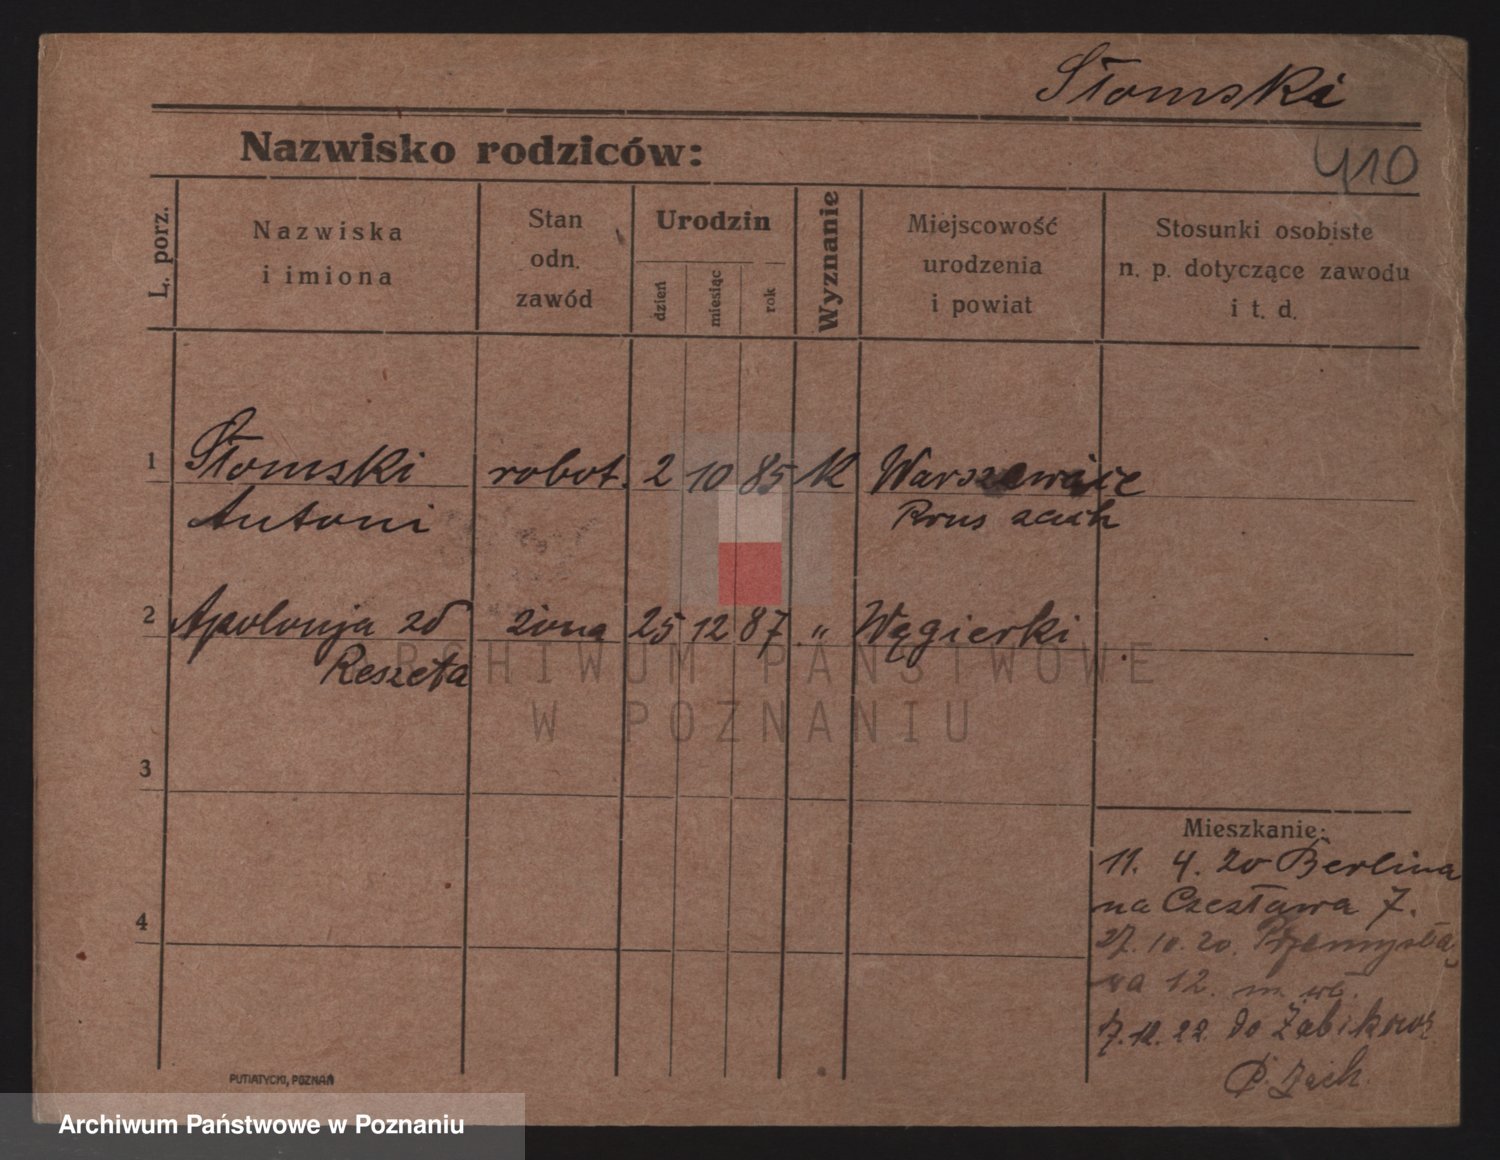 Słomski
410
Nazwisko rodziców:
L. porz.
Nazwiska
i imiona
Stan
odn.
zawód
Urodzin
dzień
miesiąc
rok
Wyznanie
Miejscowość
urodzenia
i powiat
Stosunki osobiste
n. p. dotyczące zawodu
i t. d.
1 Słomski robot. 2 10 85 K Warszewice
Antoni Prus zach
2 Apolonja zd żona 25 12 87 " Węgierki
Reszeta
3
4
Mieszkanie:
11. 4. 20 Berlina
na Czesława 7.
27. 10. 20. Przemysła
wa 12. m. wł.
7.12.22 do Żabikowa
P. Zach.
ARCHIWUM PAŃSTWOWE
W POZNANIU
PUTIATYCKI, POZNAŃ
Archiwum Państwowe w Poznaniu